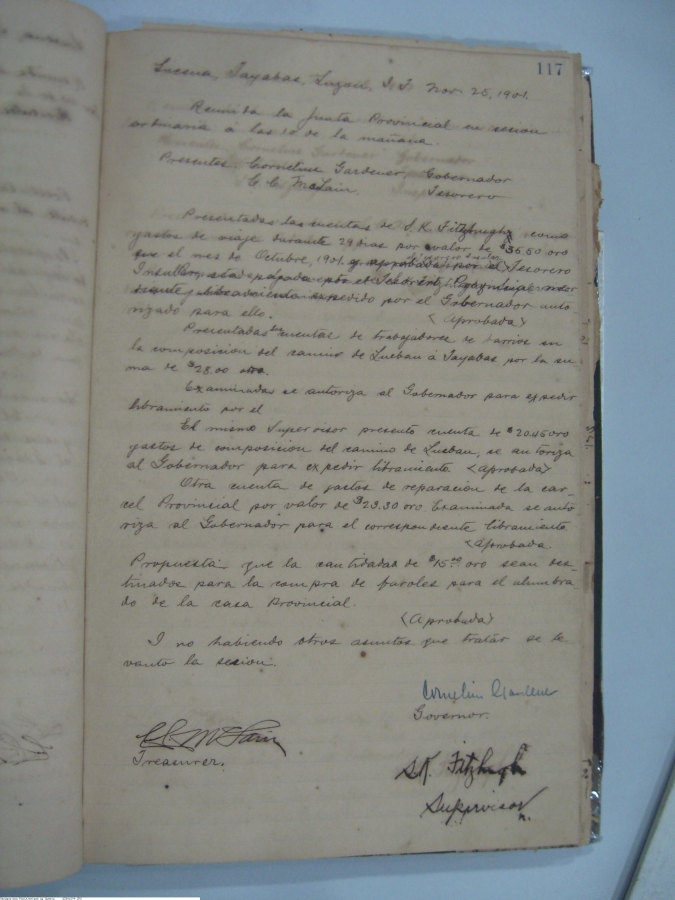 117
Lucena, Tayabas, Luzon, I. F. Nov 25, 1901.
Reunida la Junta Provincial en sesion
ordinaria á las 10 de la mañana.
Presentes. Cornelius Gardener, Gobernador
C. C. McLain. Tesorero
Presentadas las cuentas de S. K. Fitzhugh, como
gastos de viaje durante 29 dias por valor de $36.50 oro
el mes de Octubre, 1901. y aprobadas por el Tesorero
Insular
libramiento expedido por el Gobernador auto
rizado para ello. <Aprobada>
Presentadas las cuentas de trabajadores de barrios en
la composicion del camino de Lucban á Tayabas por la su-
ma de $28.00 oro.
Examinadas se autoriza al Gobernador para expedir
libramiento por el
El mismo Supervisor presentó cuenta de $20.45 oro
gastos de composicion del camino de Lucban, se autoriza
al Gobernador para expedir libramiento <Aprobada>
Otra cuenta de gastos de reparacion de la car-
cel Provincial por valor de $23.30 oro. Examinada se auto
riza al Gobernador para el correspondiente libramiento
<Aprobada.
Propuesta que la cantidadad de $15.00 oro sean des-
tinados para la compra de faroles para el alumbra
do de la casa Provincial.
<Aprobada>
I no habiendo otros asuntos que tratar se le
vantó la sesion.
Cornelius Gardener
Governor.
C. C. McLain
Treasurer.
S. K. Fitzhugh
Supervisor